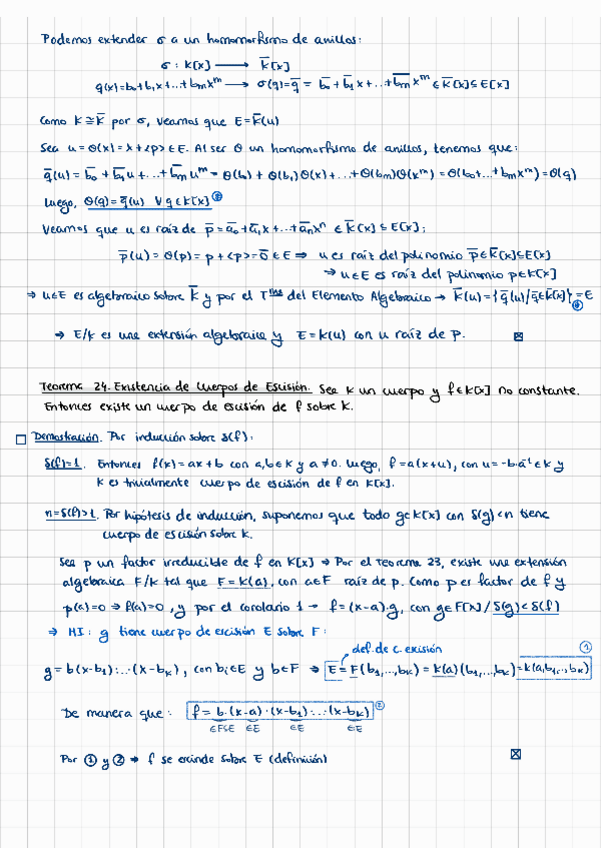 Podemos extender σ a un homomorfismo de anillos:
σ : K[x] ⟶ K̄[x]
q(x)=b₀+b₁x+...+bₘxᵐ ⟶ σ(q)=q̄ = b̄₀+b̄₁x+...+b̄ₘxᵐ ∈ K̄[x]⊆E[x]
Como K≅K̄ por σ, veamos que E=K̄(u)
Sea u=Θ(x)=x+<p>∈E. Al ser Θ un homomorfismo de anillos, tenemos que:
q̄(u)=b̄₀+b̄₁u+...+b̄ₘuᵐ=Θ(b₀)+Θ(b₁)Θ(x)+...+Θ(bₘ)Θ(xᵐ)=Θ(b₀+...+bₘxᵐ)=Θ(q)
Luego, Θ(q)=q̄(u) ∀q∈K[x]
Veamos que u es raíz de p̄=ā₀+ā₁x+...+āₙxⁿ ∈K̄[x]⊆E[x]:
p̄(u)=Θ(p)=p+<p>=0̄∈E ⇒ u es raíz del polinomio p̄∈K̄[x]⊆E[x]
⇒ u∈E es raíz del polinomio p∈K[x]
⇒ u∈E es algebraico sobre K̄ y por el Tᵐᵃ del Elemento Algebraico → K̄(u)={q̄(u)/q̄∈K̄[x]}=E
⇒ E/K es una extensión algebraica y E=K(u) con u raíz de p.
Teorema 24. Existencia de Cuerpos de Escisión. Sea K un cuerpo y f∈K[x] no constante.
Entonces existe un cuerpo de escisión de f sobre K.
Demostración. Por inducción sobre δ(f):
δ(f)=1. Entonces f(x)=ax+b con a,b∈K y a≠0. Luego, f=a(x+u), con u=-b·a⁻¹∈K y
K es trivialmente cuerpo de escisión de f en K[x].
n=δ(f)>1. Por hipótesis de inducción, suponemos que todo g∈K[x] con δ(g)<n tiene
cuerpo de escisión sobre K.
Sea p un factor irreducible de f en K[x] ⇒ Por el teorema 23, existe una extensión
algebraica F/K tal que F=K(a), con a∈F raíz de p. Como p es factor de f y
p(a)=0 ⇒ f(a)=0, y por el corolario 1 → f=(x-a)·g, con g∈F[x]/δ(g)<δ(f)
⇒ HI: g tiene cuerpo de escisión E sobre F:
def. de c. escisión ①
g=b(x-b₁)·...·(x-bₖ), con bᵢ∈E y b∈F ⇒ E=F(b₁,...,bₖ)=K(a)(b₁,...,bₖ)=K(a,b₁,...,bₖ)
De manera que: f=b·(x-a)·(x-b₁)·...·(x-bₖ) ②
∈F⊆E ∈E ∈E ∈E
Por ① y ② ⇒ f se escinde sobre E (definición)